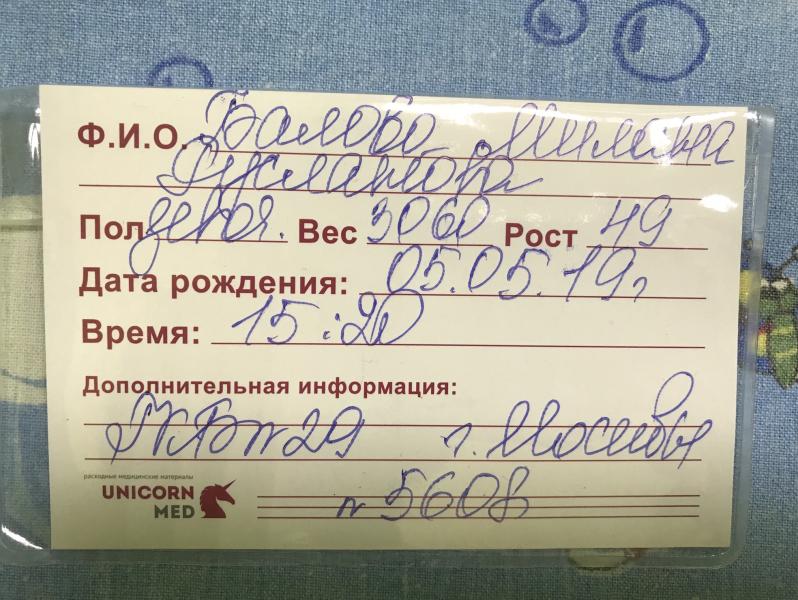 Ф.И.О. Балова Милана
Руслановна
Пол девоч. Вес 3060 Рост 49
Дата рождения: 05.05.19г
Время: 15:20
Дополнительная информация:
ГКБ№29 г. Москвы
расходные медицинские материалы
UNICORN
MED
№5608